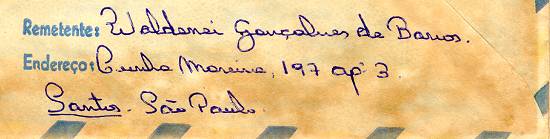 Remetente: Waldenei Gonçalves de Barros.
Endereço: Cunha Moreira, 197 apº 3.
Santos - São Paulo.